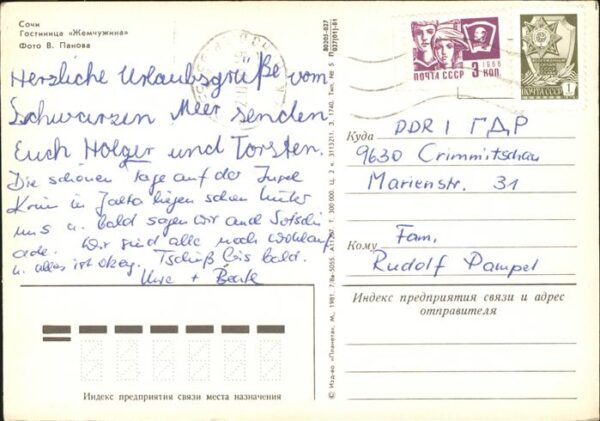 Сочи
Гостиница «Жемчужина»
Фото В. Панова
Herzliche Urlaubsgrüße vom
Schwarzen Meer senden
Euch Holger und Torsten.
Die schönen Tage auf der Insel
Krim in Jalta liegen schon hinter
uns u. bald sagen wir auch Sotschi
ade. Wir sind alle noch wohlauf
u. alles ist okay. Tschüß bis bald.
Uwe + Beate
Индекс предприятия связи места назначения
© Изд-во «Планета», М., 1981.
3113211. З. 1740. Тип. № 5
B0205-027
027(01)-81
ПОЧТА СССР
3 КОП.
1966
ПОЧТА СССР
1
Куда
DDR / ГДР
9630 Crimmitschau
Marienstr. 31
Кому
Fam.
Rudolf Pampel
Индекс предприятия связи и адрес
отправителя